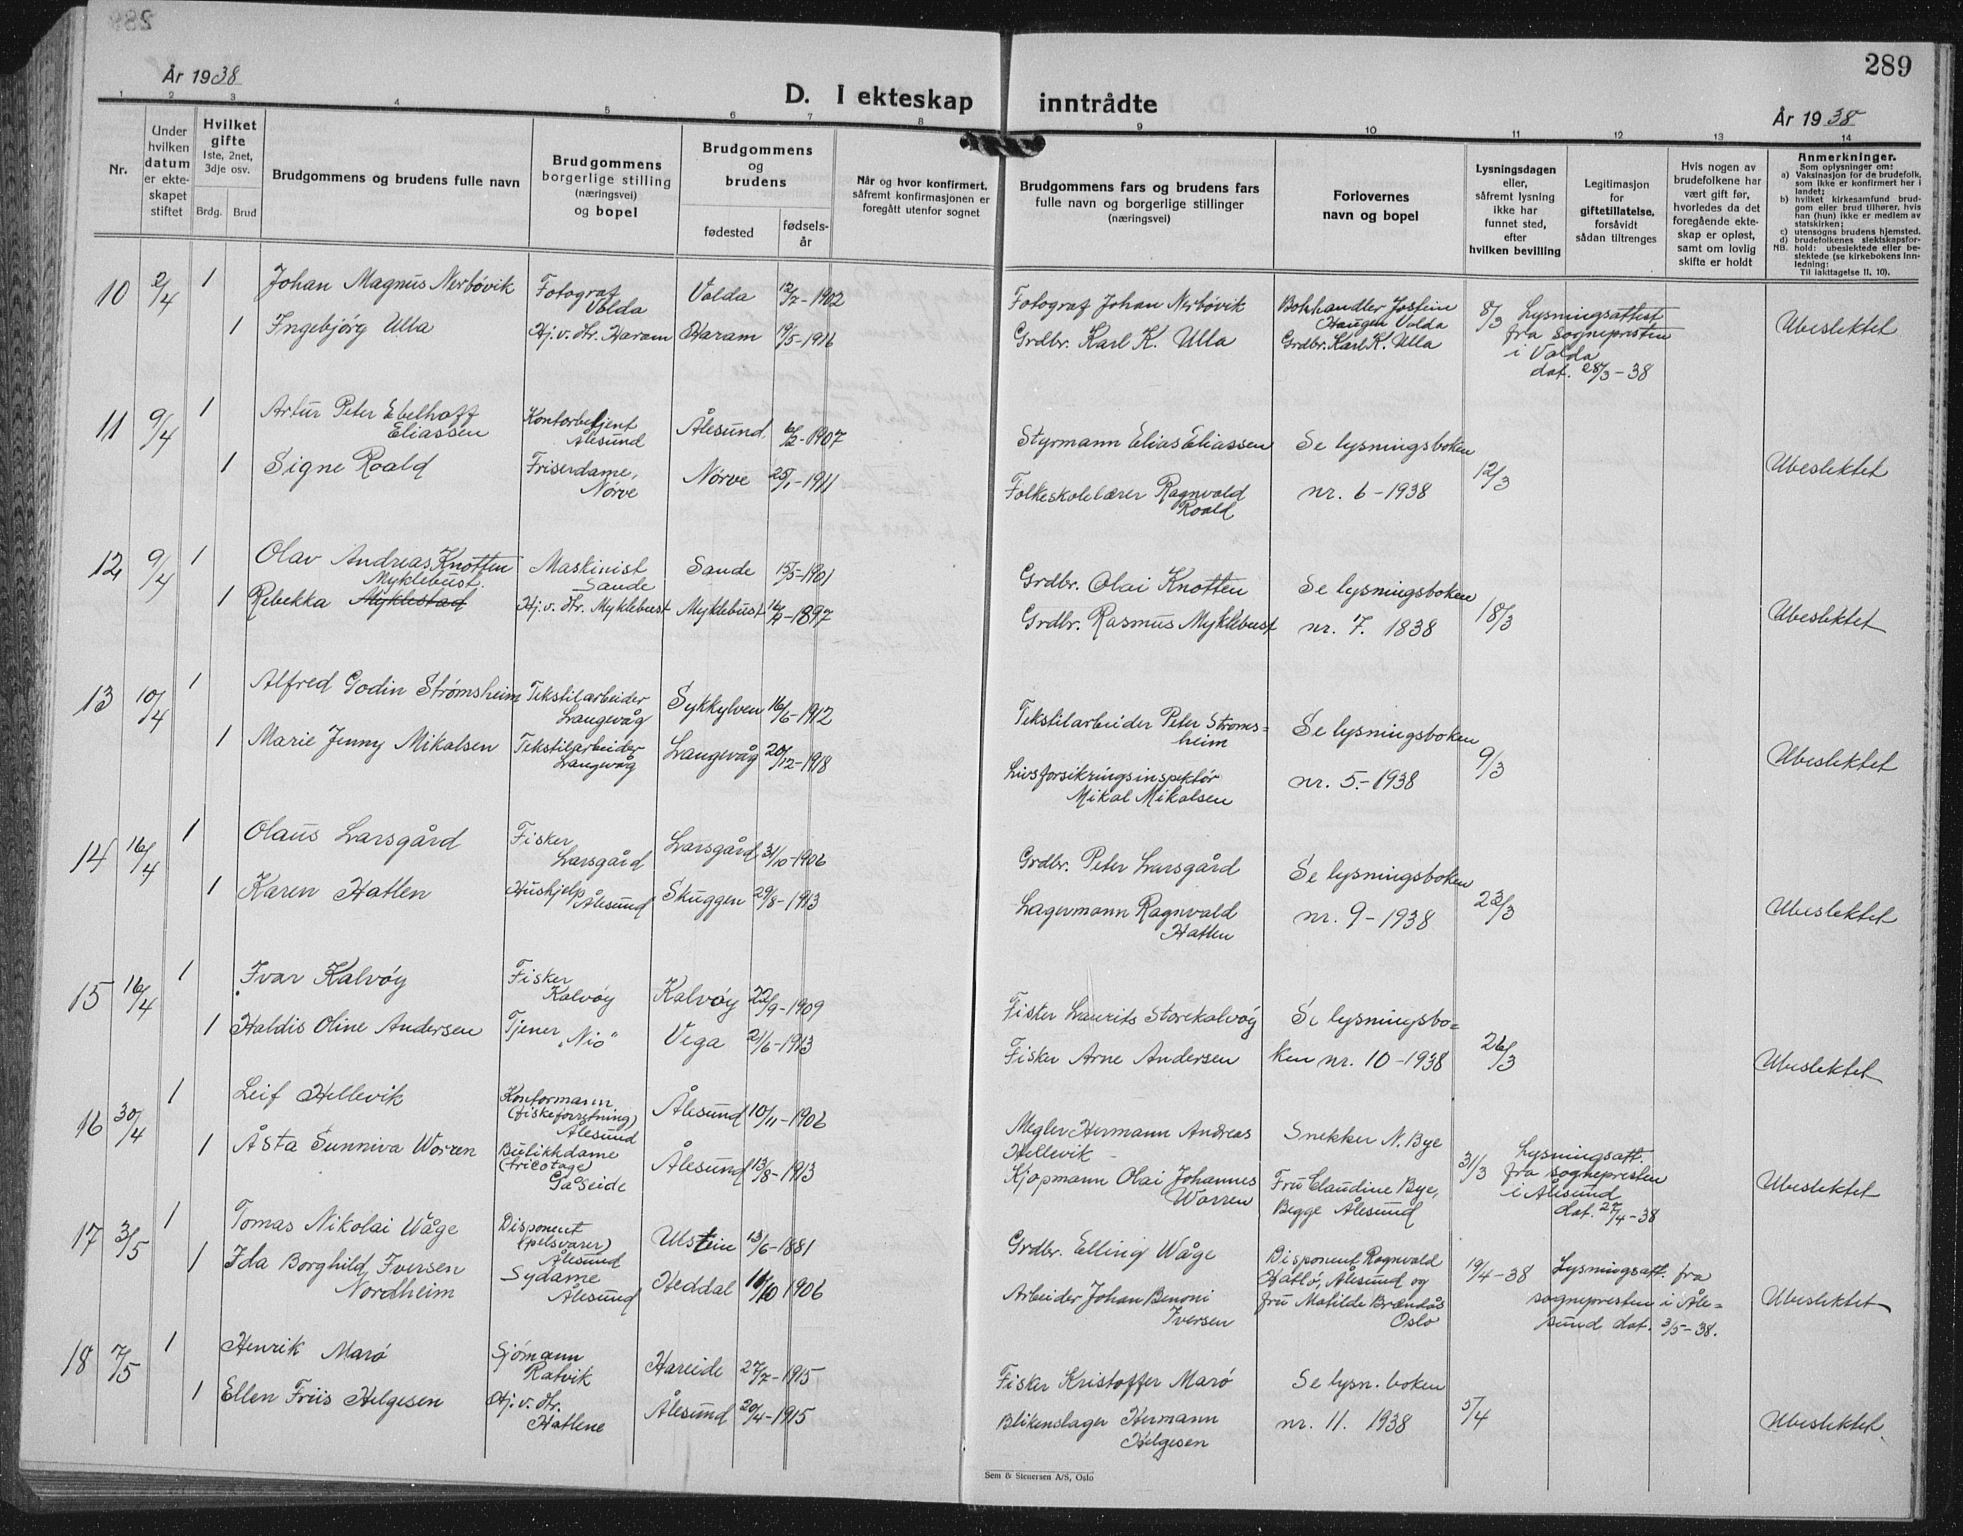 289
År 1938
D. I ekteskap inntrådte
År 1938
1 2 3 4 5 6 7 8 9 10 11 12 13 14
Nr.
Under hvilken datum er ekteskapet stiftet
Hvilket gifte
1ste, 2net, 3dje osv.
Brdg. Brud
Brudgommens og brudens fulle navn
Brudgommens borgerlige stilling (næringsvei) og bopel
Brudgommens og brudens
fødested
fødselsår
Når og hvor konfirmert, såfremt konfirmasjonen er foregått utenfor sognet
Brudgommens fars og brudens fars fulle navn og borgerlige stillinger (næringsvei)
Forlovernes navn og bopel
Lysningsdagen eller, såfremt lysning ikke har funnet sted, efter hvilken bevilling
Legitimasjon for giftetillatelse, forsåvidt sådan tiltrenges
Hvis nogen av brudefolkene har vært gift før, hvorledes da det foregående ekteskap er opløst, samt om lovlig skifte er holdt
Anmerkninger.
Som oplysninger om:
a) Vaksinasjon for de brudefolk, som ikke er konfirmert her i landet;
b) hvilket kirkesamfund brudgom eller brud tilhører, hvis han (hun) ikke er medlem av statskirken;
c) utensogns brudens hjemsted.
d) brudefolkenes slektskapsforhold: ubeslektede eller beslektede (se kirkebokens Innledning:
NB. Til iakttagelse II, 10).
10 2/4 1 Johan Magnus Nerbøvik Fotograf Volda Volda 12/2-1902 Fotograf Johan Nerbøvik Bokhandler Jostein Haugen Volda 8/3 Lysningsattest fra sognepresten i Volda dat. 28/3-38 Ubeslektet
1 Ingebjørg Ulla Hj.v. Hr. Haram Haram 19/5-1916 Grdbr. Karl K. Ulla Grdbr. Karl K. Ulla
11 9/4 1 Artur Peter Ebelhoff Eliassen Kontorbetjent Ålesund Ålesund 6/2-1907 Styrmann Elias Eliassen Se lysningsboken 12/3 Ubeslektet
1 Signe Roald Friserdame, Nørve Nørve 25/1-1911 Folkeskolelærer Ragnvald Roald nr. 6-1938
12 9/4 1 Olav Andreas Knotten Maskinist Sande Sande 15/5-1901 Grdbr. Olai Knotten Se lysningsboken 18/3 Ubeslektet
1 Rebekka Myklestad Myklebust Hj.v. Hr. Myklebust Myklebust -1897 Grdbr. Rasmus Myklebust nr. 7. 1838
13 10/4 1 Alfred Godin Strømsheim Tekstilarbeider Langevåg Sykkylven 16/6-1912 Tekstilarbeider Peter Strømsheim Se lysningsboken 9/3 Ubeslektet
1 Marie Jenny Mikalsen Tekstilarbeider Langevåg Langevåg 20/12-1918 Livsforsikringsinspektør Mikal Mikalsen nr. 5.-1938
14 16/4 1 Olaus Larsgård Fisker Larsgård Larsgård 31/10-1906 Grdbr. Peter Larsgård Se lysningsboken 23/3 Ubeslektet
1 Karen Hatlen Hushjelp Ålesund Skuggen 29/8-1913 Lagermann Ragnvald Hatlen nr. 9-1938
15 16/4 1 Ivar Kalvøy Fisker Kalvøy Kalvøy 22/9-1909 Fisker Laurits Storekalvøy Se lysningsbo= 26/3 Ubeslektet
1 Haldis Oline Andersen Tjener "Nio" Vega 21/6-1913 Fisker Arne Andersen ken nr. 10-1938
16 30/4 1 Leif Hellevik Kontormann (fiskeforretning) Ålesund Ålesund 10/11-1906 Megler Hermann Andreas Hellevik Snekker N. Bye 31/3 Lysningsatt. fra sognepresten i Ålesund dat. 27/4-38 Ubeslektet
1 Åsta Sunniva Worren Butikkdame (tricotage) Gåseide Ålesund 13/8-1913 Kjøpmann Olai Johannes Worren Fru Claudine Bye, Begge Ålesund
17 3/5 1 Tomas Nikolai Wåge Disponent (pelsvarer) Ålesund Ulstein 13/6-1881 Grdbr. Elling Wåge Disponent Ragnvald Hatlø, Ålesund og 19/4-38 Lysningsatt. fra sognepresten i Åle= sund dat. 3/5-38. Ubeslektet
1 Ida Borghild Iversen Nordheim Sydame Ålesund Heddal 11/10 1906 Arbeider Johan Benoni Iversen fru Matilde Brændås Oslo
18 7/5 1 Henrik Marø Sjømann Ratvik Hareide 27/7-1915 Fisker Kristoffer Marø Se lysn. boken 5/4 Ubeslektet.
1 Ellen Friis Helgesen Hj.v. Hr. Hatlene Ålesund 20/4-1915 Blikenslager Hermann Helgesen nr. 11. 1938
Sem & Stenersen A/S, Oslo